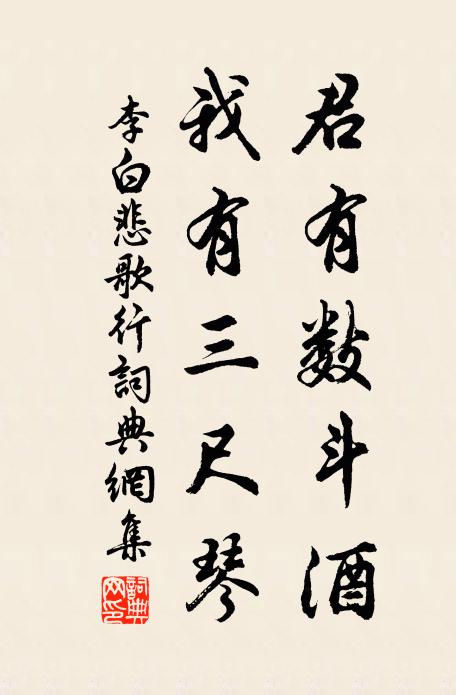 君有数斗酒
我有三尺琴
李白悲歌行詞典網集
詞典網印